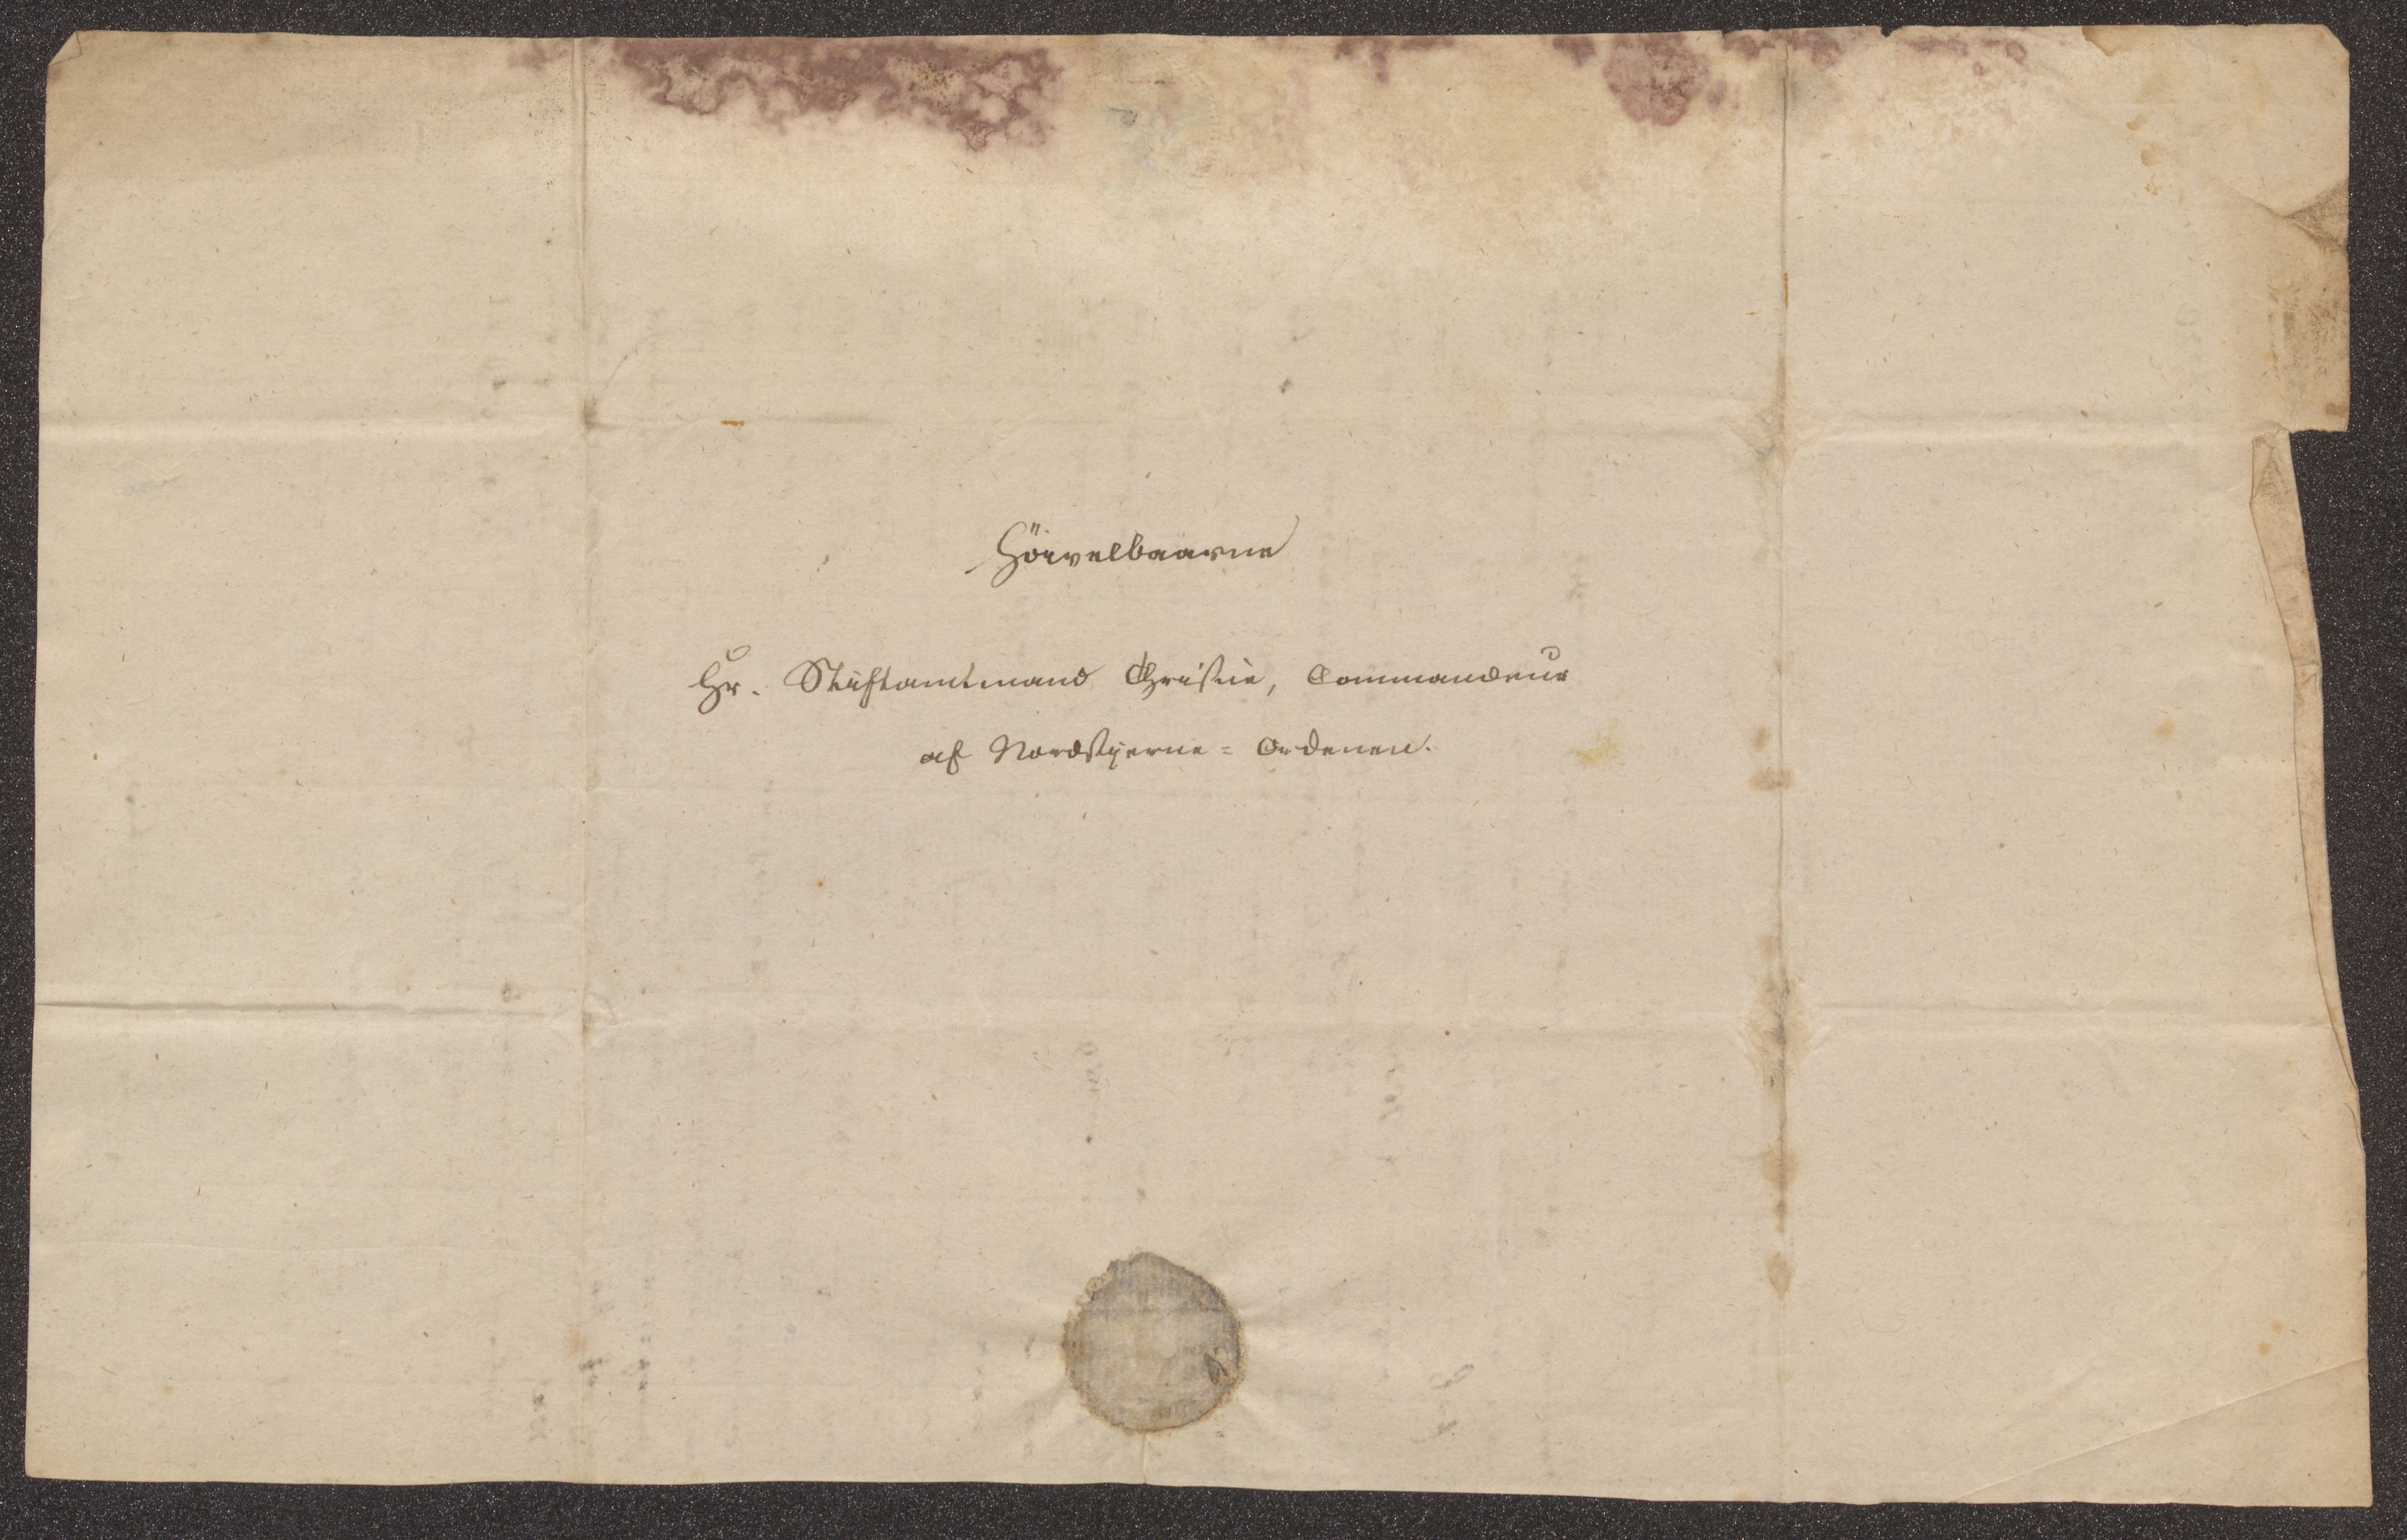 Höivelbaarne
Hr. Stiftamtmand Christie, Commandeur
af Nordstjerne-Ordenen.